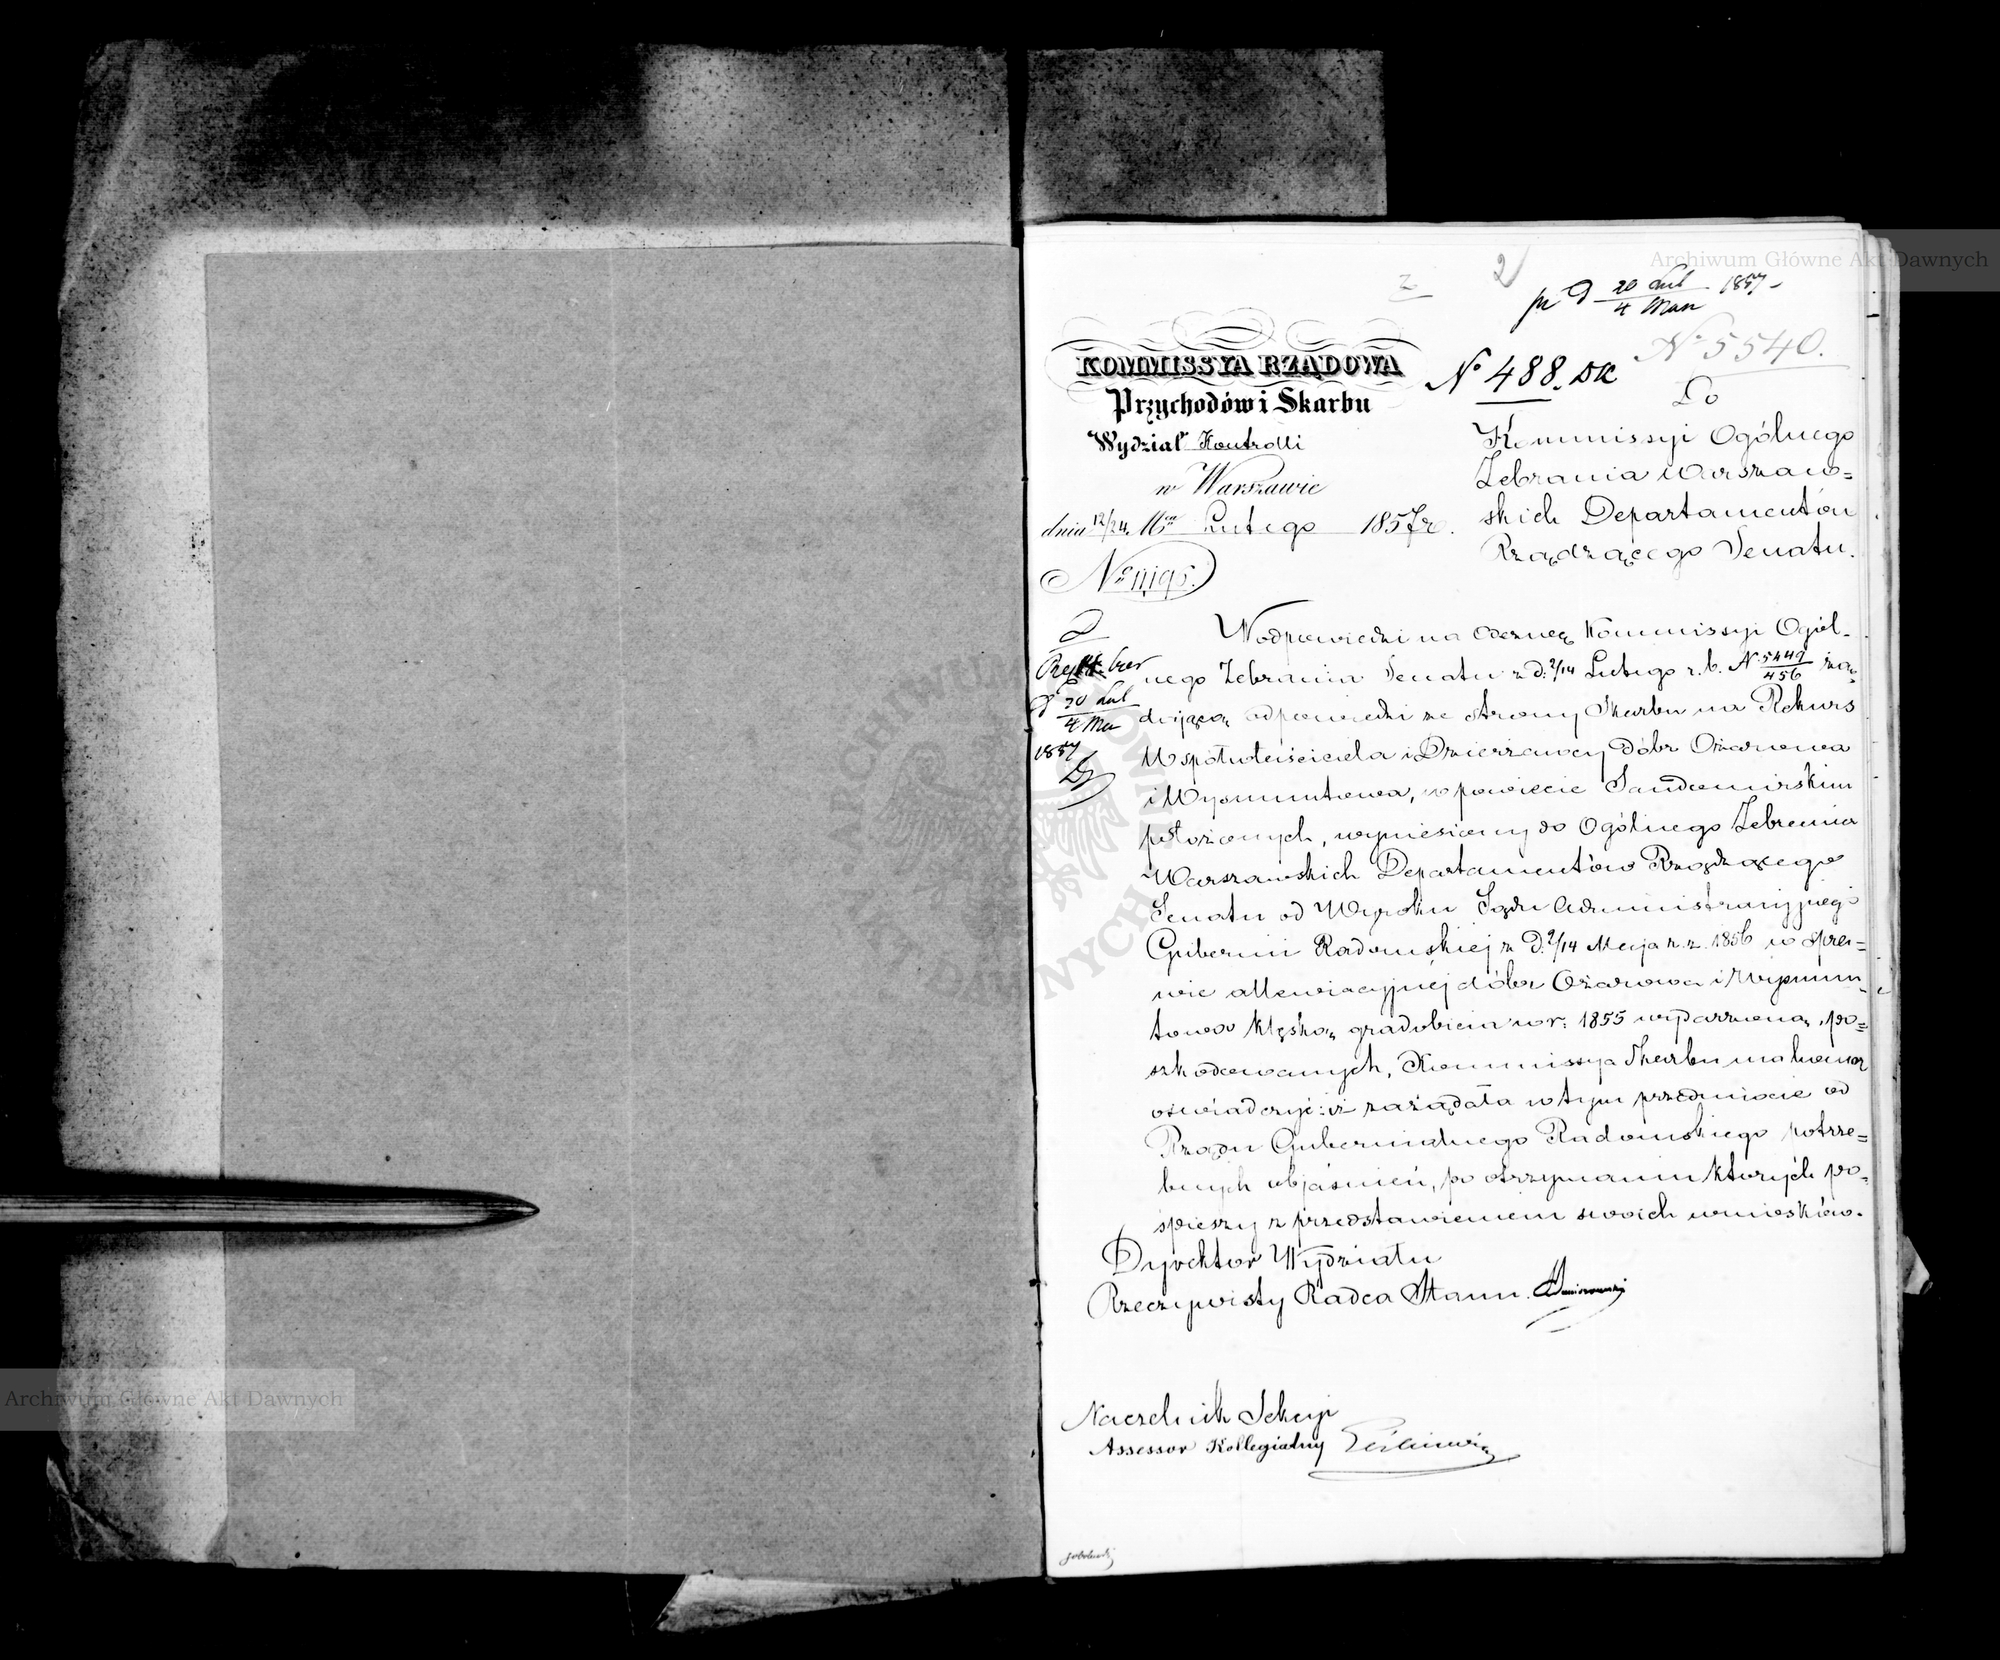 2
pr d 20 Lut / 4 Mar 1857
N° 5540.
N° 488. DK
KOMMISSYA RZĄDOWA
Przychodów i Skarbu
Wydział Kontrolli
w Warszawie
dnia 12/24 Mca Lutego 1857 r.
No 11,196.
Do
Kommissyi Ogólnego
Zebrania Warszaw=
skich Departamentów
Rządzącego Senatu.
d 20 Lut / 4 Mar
1857
W odpowiedzi na odezwę Kommissyi Ogól-
nego Zebrania Senatu z d. 2/14 Lutego r. b. N 5449/456 żą-
dającą odpowiedzi ze strony Skarbu na Rekurs
Współwłaściciela i Dzierżawcy dóbr Ożarowa
i Wysmuntowa, w powiecie Sandomirskim
położonych, wyniesiony do Ogólnego Zebrania
Warszawskich Departamentów Rządzącego
Senatu od Wyroku Sądu Administracyjnego
Gubernii Radomskiej z D. 2/14 Maja r. z. 1856 w spra=
wie allewiacyjnej dóbr Ożarowa i Wysmun-
towa klęską gradobicia w r: 1855 wydarzoną, po=
szkodowanych, Kommissya Skarbu ma honor
oświadczyć: iż zażądała w tym przedmiocie od
Rządu Gubernialnego Radomskiego potrze=
bnych objaśnień, po otrzymaniu których po=
śpieszy z przedstawieniem swoich wniosków.
Dyrektor Wydziału
Rzeczywisty Radca Stanu
Naczelnik Sekcyi
Assessor Kollegialny
Archiwum Główne Akt Dawnych
Archiwum Główne Akt Dawnych